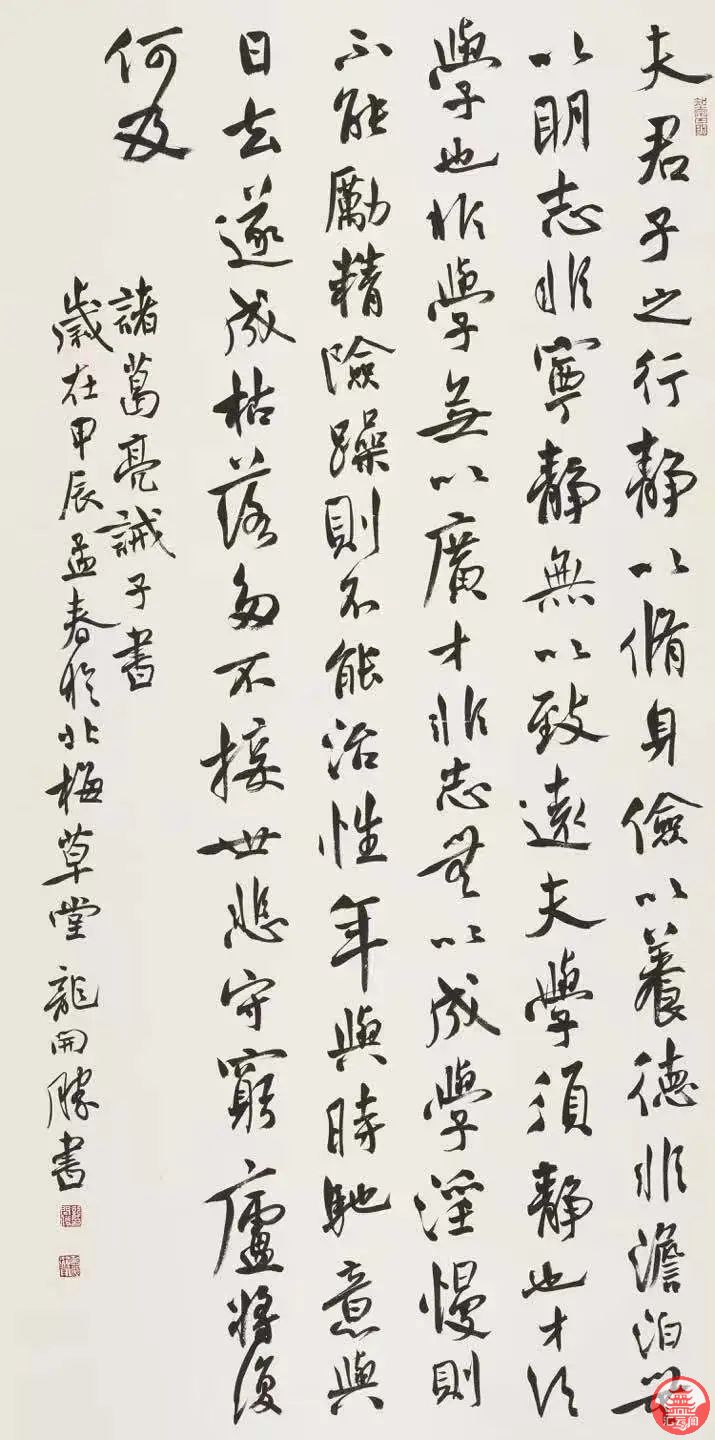 夫君子之行靜以脩身儉以養德非澹泊無
以明志非寧靜無以致遠夫學須靜也才須
學也非學無以廣才非志無以成學淫慢則
不能勵精險躁則不能治性年與時馳意與
日去遂成枯落多不接世悲守窮廬將復
何及
諸葛亮誡子書
歲在甲辰孟春於北梅草堂龍開勝書
汇云阁